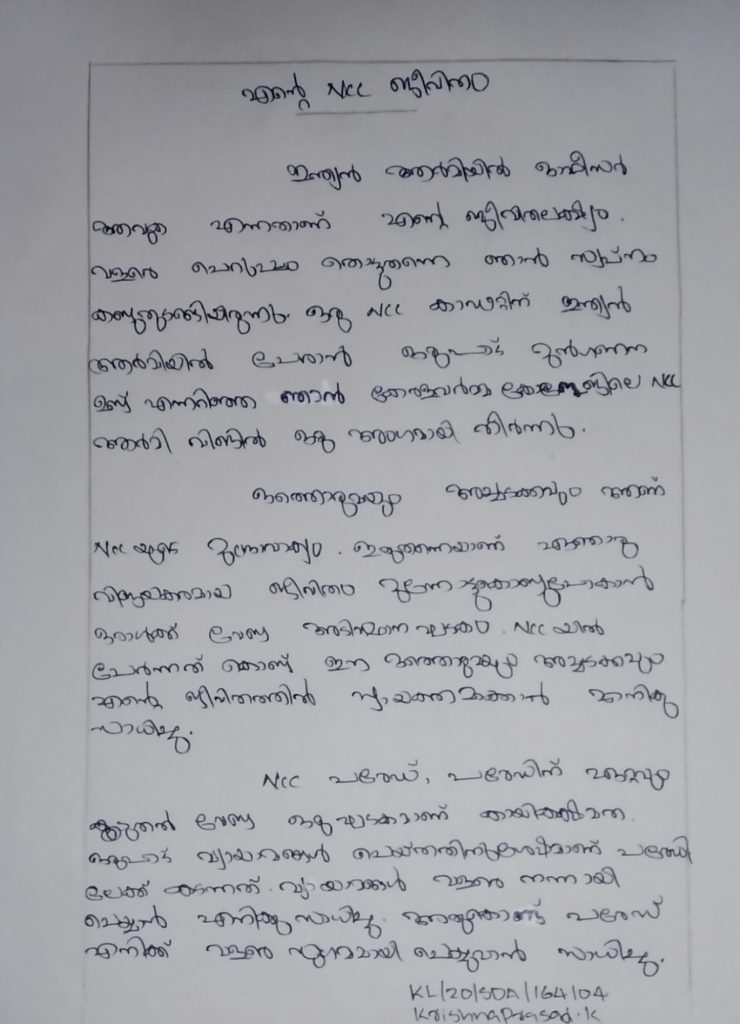 എന്റെ NCC ജീവിതം
ഇന്ത്യൻ ആർമിയിൽ ഓഫീസർ
ആവുക എന്നതാണ് എന്റെ ജീവിതലക്ഷ്യം.
വളരെ ചെറുപ്പം തൊട്ടുതന്നെ ഞാൻ സ്വപ്നം
കണ്ടുതുടങ്ങിയിരുന്നു. ഒരു NCC കാഡറ്റിന് ഇന്ത്യൻ
ആർമിയിൽ ചേരാൻ ഒരുപാട് മുൻഗണന
ഉണ്ട് എന്നറിഞ്ഞ ഞാൻ കേരളവർമ്മ കോളേജിലെ NCC
ആർമി വിങ്ങിൽ ഒരു അംഗമായി തീർന്നു.
ഒത്തൊരുമയും അച്ചടക്കവും ആണ്
NCC യുടെ മുദ്രാവാക്യം. ഇതുതന്നെയാണ് ഏതൊരു
വിജയകരമായ ജീവിതം മുന്നോട്ടുകൊണ്ടുപോകാൻ
ഒരാൾക്ക് വേണ്ട അടിസ്ഥാന ഘടകം. NCC യിൽ
ചേർന്നത് കൊണ്ട് ഈ ഒത്തൊരുമയും അച്ചടക്കവും
എന്റെ ജീവിതത്തിൽ സ്വായത്തമാക്കാൻ എനിക്കു
സാധിച്ചു.
NCC പരേഡ്, പരേഡിന് ഏറ്റവും
കൂടുതൽ വേണ്ട ഒരു ഘടകമാണ് കായികക്ഷമത.
ഒരുപാട് വ്യായാമങ്ങൾ ചെയ്തതിനുശേഷമാണ് പരേഡി
ലേക്ക് കടന്നത്. വ്യായാമങ്ങൾ വളരെ നന്നായി
ചെയ്യാൻ എനിക്കു സാധിച്ചു. അതുകൊണ്ട് പരേഡ്
എനിക്ക് വളരെ സുഗമമായി ചെയ്യുവാൻ സാധിച്ചു.
KL/20/SDA/164104
Krishnaprasad.K